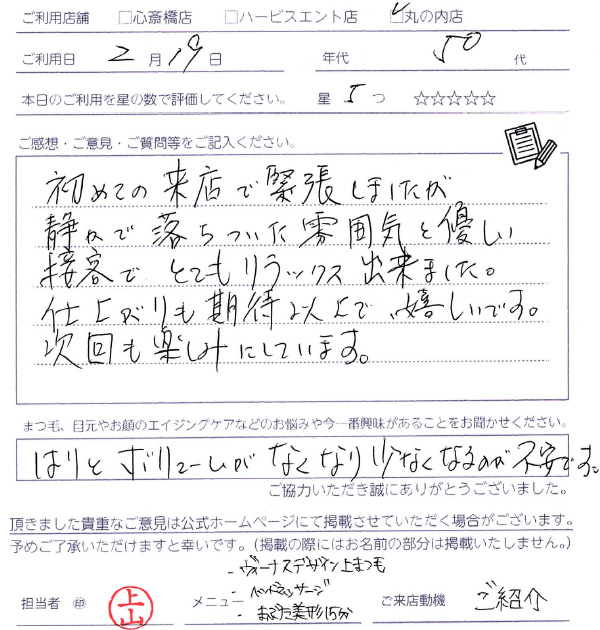 ご利用店舗 □心斎橋店 □ハービスエント店 ☑丸の内店
ご利用日 2月19日 年代 50代
本日のご利用を星の数で評価してください。 星 5つ ☆☆☆☆☆
ご感想・ご意見・ご質問等をご記入ください。
初めての来店で緊張しましたが
静かで落ちついた雰囲気と優しい
接客でとてもリラックス出来ました。
仕上がりも期待以上で、嬉しいです。
次回も楽しみにしています。
まつ毛、目元やお顔のエイジングケアなどのお悩みや今一番興味があることをお聞かせください。
はりとボリュームがなくなり少なくなるのが不安です。
ご協力いただき誠にありがとうございました。
頂きました貴重なご意見は公式ホームページにて掲載させていただく場合がございます。
予めご了承いただけますと幸いです。(掲載の際にはお名前の部分は掲載いたしません。)
・ヴィーナスデザイン上まつ毛
担当者 ㊞ 上山 メニュー ・ハンドマッサージ ご来店動機 ご紹介
・まぶた美形15分